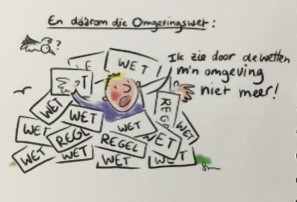 En dáárom die Omgevingswet:
?
Ik zie door de wetten
m'n omgeving
niet meer!
WET
WET
WET
REGEL
WET
WET
WET
REGEL
WET
WET
REGEL
WET
WET
WET
WET